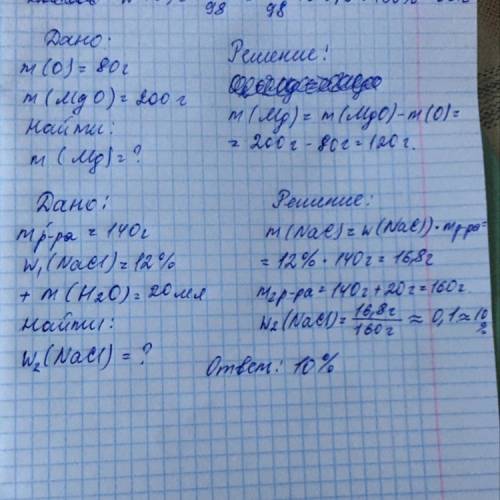 98 98
Дано:
m(O) = 80г
m(MgO) = 200г
Найти:
m(Mg) = ?
Решение:
m(Mg) = m(MgO) - m(O) =
= 200г - 80г = 120г.
Дано:
m р-ра = 140г
W₁(NaCl) = 12%
+ m(H₂O) = 20мл
Найти:
W₂(NaCl) = ?
Решение:
m(NaCl) = W(NaCl) · m р-ра =
= 12% · 140г = 16,8г
m₂ р-ра = 140г + 20г = 160г.
W₂(NaCl) = 16,8г / 160г ≈ 0,1 ≈ 10 %
Ответ: 10%